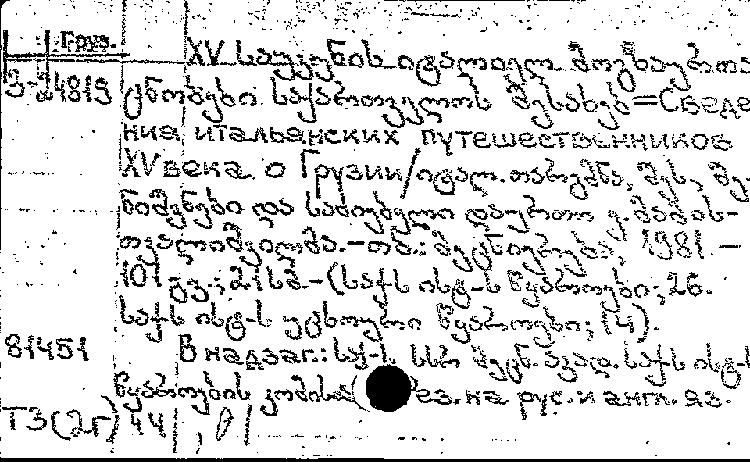 Груз.
XV საუკუნის იტალიელ მოგზაურთა
3-24819 ცნობები საქართველოს შესახებ = Сведе-
ния итальянских путешественников
XV века о Грузии/იტალ. თარგმნა, შეს., შე-
ნიშვნები და საძიებელი დაურთო ე. მამის-
თვალიშვილმა. – თბ.: მეცნიერება, 1981. –
101 გვ.; 21 სმ – (საქ. ისტ-ს წყაროები; 26.
საქ-ს ისტ-ს უცხოური წყაროები; (4).
81451 В надзаг.: საქ-ს სსრ მეცნ. აკად. საქ-ს ისტ-ს
წყაროების კომისია ез. на рус. и англ. яз.
Т3(2Г) 44